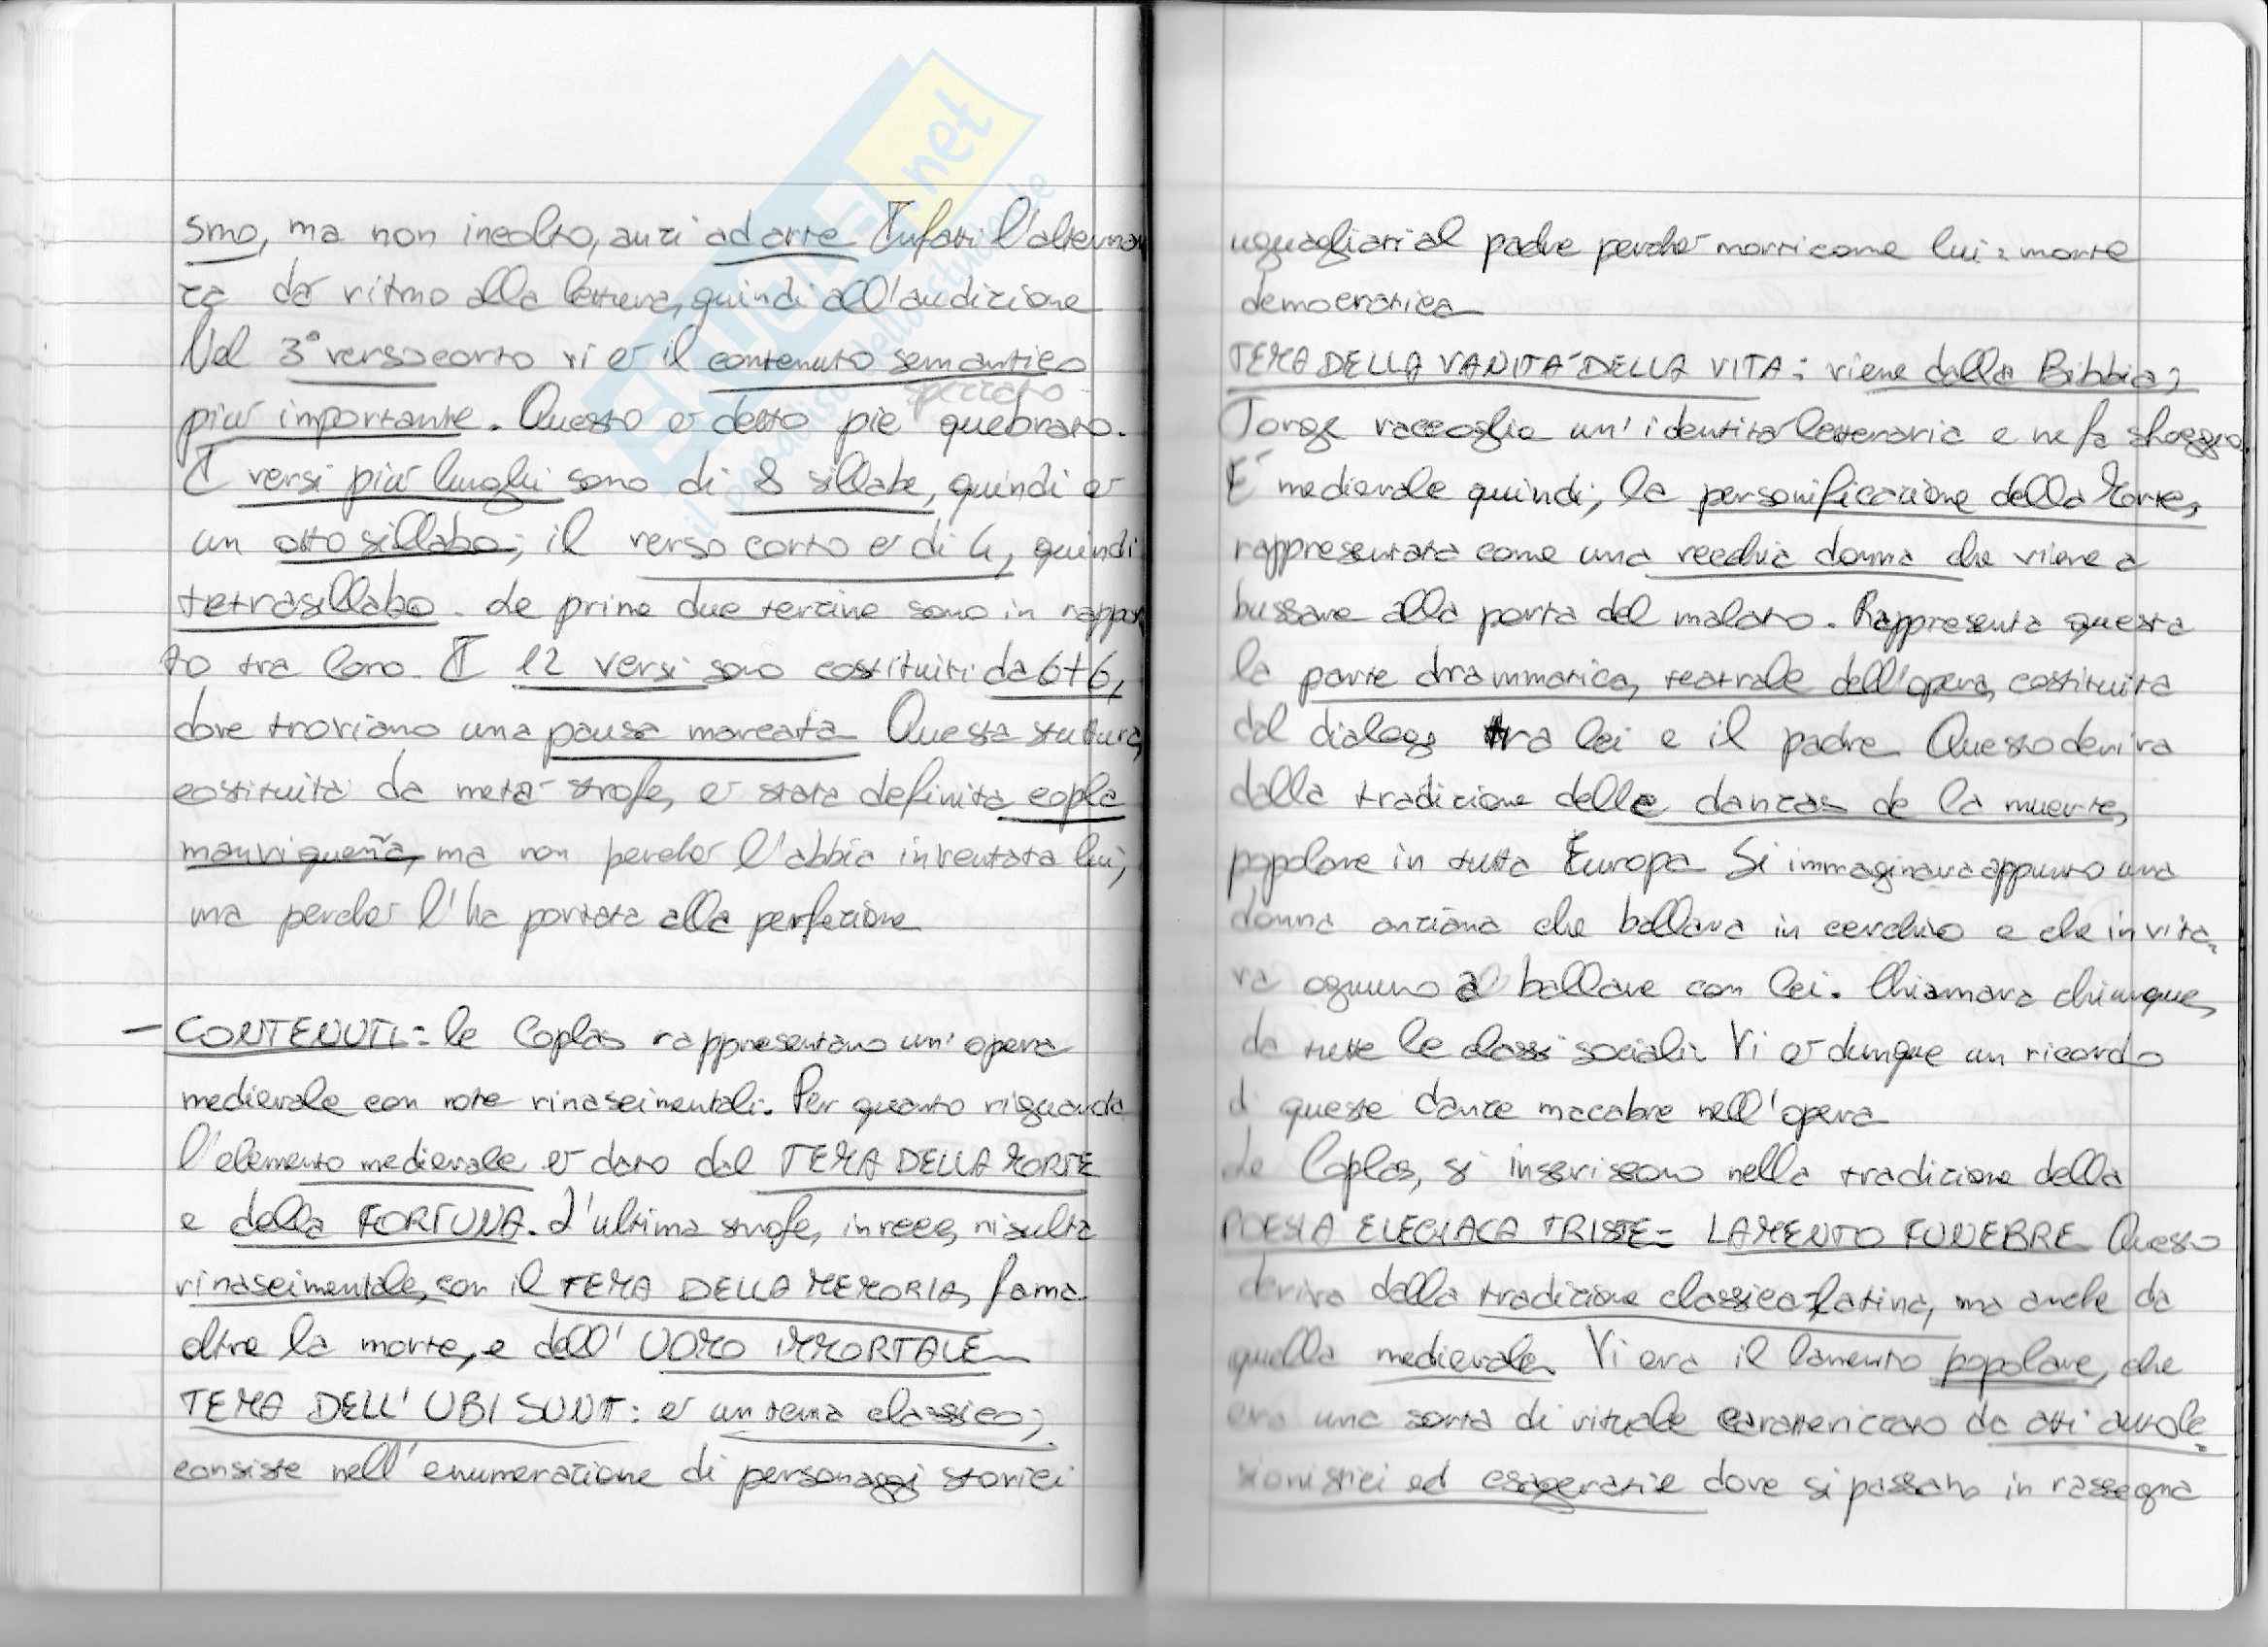 smo, ma non incolto, anzi ad arte Infatti l'alternan
za dà ritmo alla lettura, quindi all'audizione
Nel 3° verso corto vi è il contenuto semantico
spezzato
più importante. Questo è detto pie quebrato.
I versi più lunghi sono di 8 sillabe, quindi è
un ottosillabo; il verso corto è di 4, quindi
tetrasillabo. Le prime due terzine sono in rappor
to tra loro. I 12 versi sono costituiti da 6+6,
dove troviamo una pausa marcata Questa struttura,
costituita da metà strofe, è stata definita copla
manriqueña, ma non perché l'abbia inventata lui,
ma perché l'ha portata alla perfezione
- CONTENUTI: le Coplas rappresentano un'opera
medievale con note rinascimentali. Per quanto riguarda
l'elemento medievale è dato dal TEMA DELLA MORTE
e della FORTUNA. L'ultima strofe, invece, risulta
rinascimentale, con il TEMA DELLA MEMORIA, fama
oltre la morte, e dell'UOMO IMMORTALE
TEMA DELL'UBI SUNT: è un tema classico;
consiste nell'enumerazione di personaggi storici
uguagliati al padre perché morti come lui: morte
democratica
TEMA DELLA VANITÀ DELLA VITA: viene dalla Bibbia;
Jorge raccoglie un'identità letteraria e ne fa sfoggio
È medievale quindi, la personificazione della Morte,
rappresentata come una vecchia donna che viene a
bussare alla porta del malato. Rappresenta questa
la parte drammatica, teatrale dell'opera, costituita
dal dialogo tra lei e il padre Questo deriva
dalla tradizione delle danzas de la muerte,
popolare in tutta Europa Si immaginava appunto una
donna anziana che ballava in cerchio e che invita-
va ognuno a ballare con lei. Chiamava chiunque,
da tutte le classi sociali Vi è dunque un ricordo
di queste danze macabre nell'opera
Le Coplas, si inseriscono nella tradizione della
POESIA ELEGIACA TRISTE= LAMENTO FUNEBRE Questo
deriva dalla tradizione classica-latina, ma anche da
quella medievale Vi era il lamento popolare, che
era una sorta di rituale caratterizzato da atti autole-
sionistici ed esagerati e dove si passano in rassegna